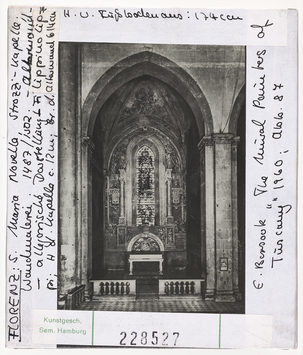 H. v. Fußbodenaus: 174cm
FLORENZ: S. Maria Novella, Strozzi-Kapelle
Wandmalerei, 1487/1502: Altarwand
- allegorische Darstellung Filippino Lippi
H. d. Kapelle c. 12m; Br. d. Altarwand 614cm
E. Borsook "The Mural Painters of
Tuscany" 1960, Abb. 87
Kunstgesch.
Sem. Hamburg
228527